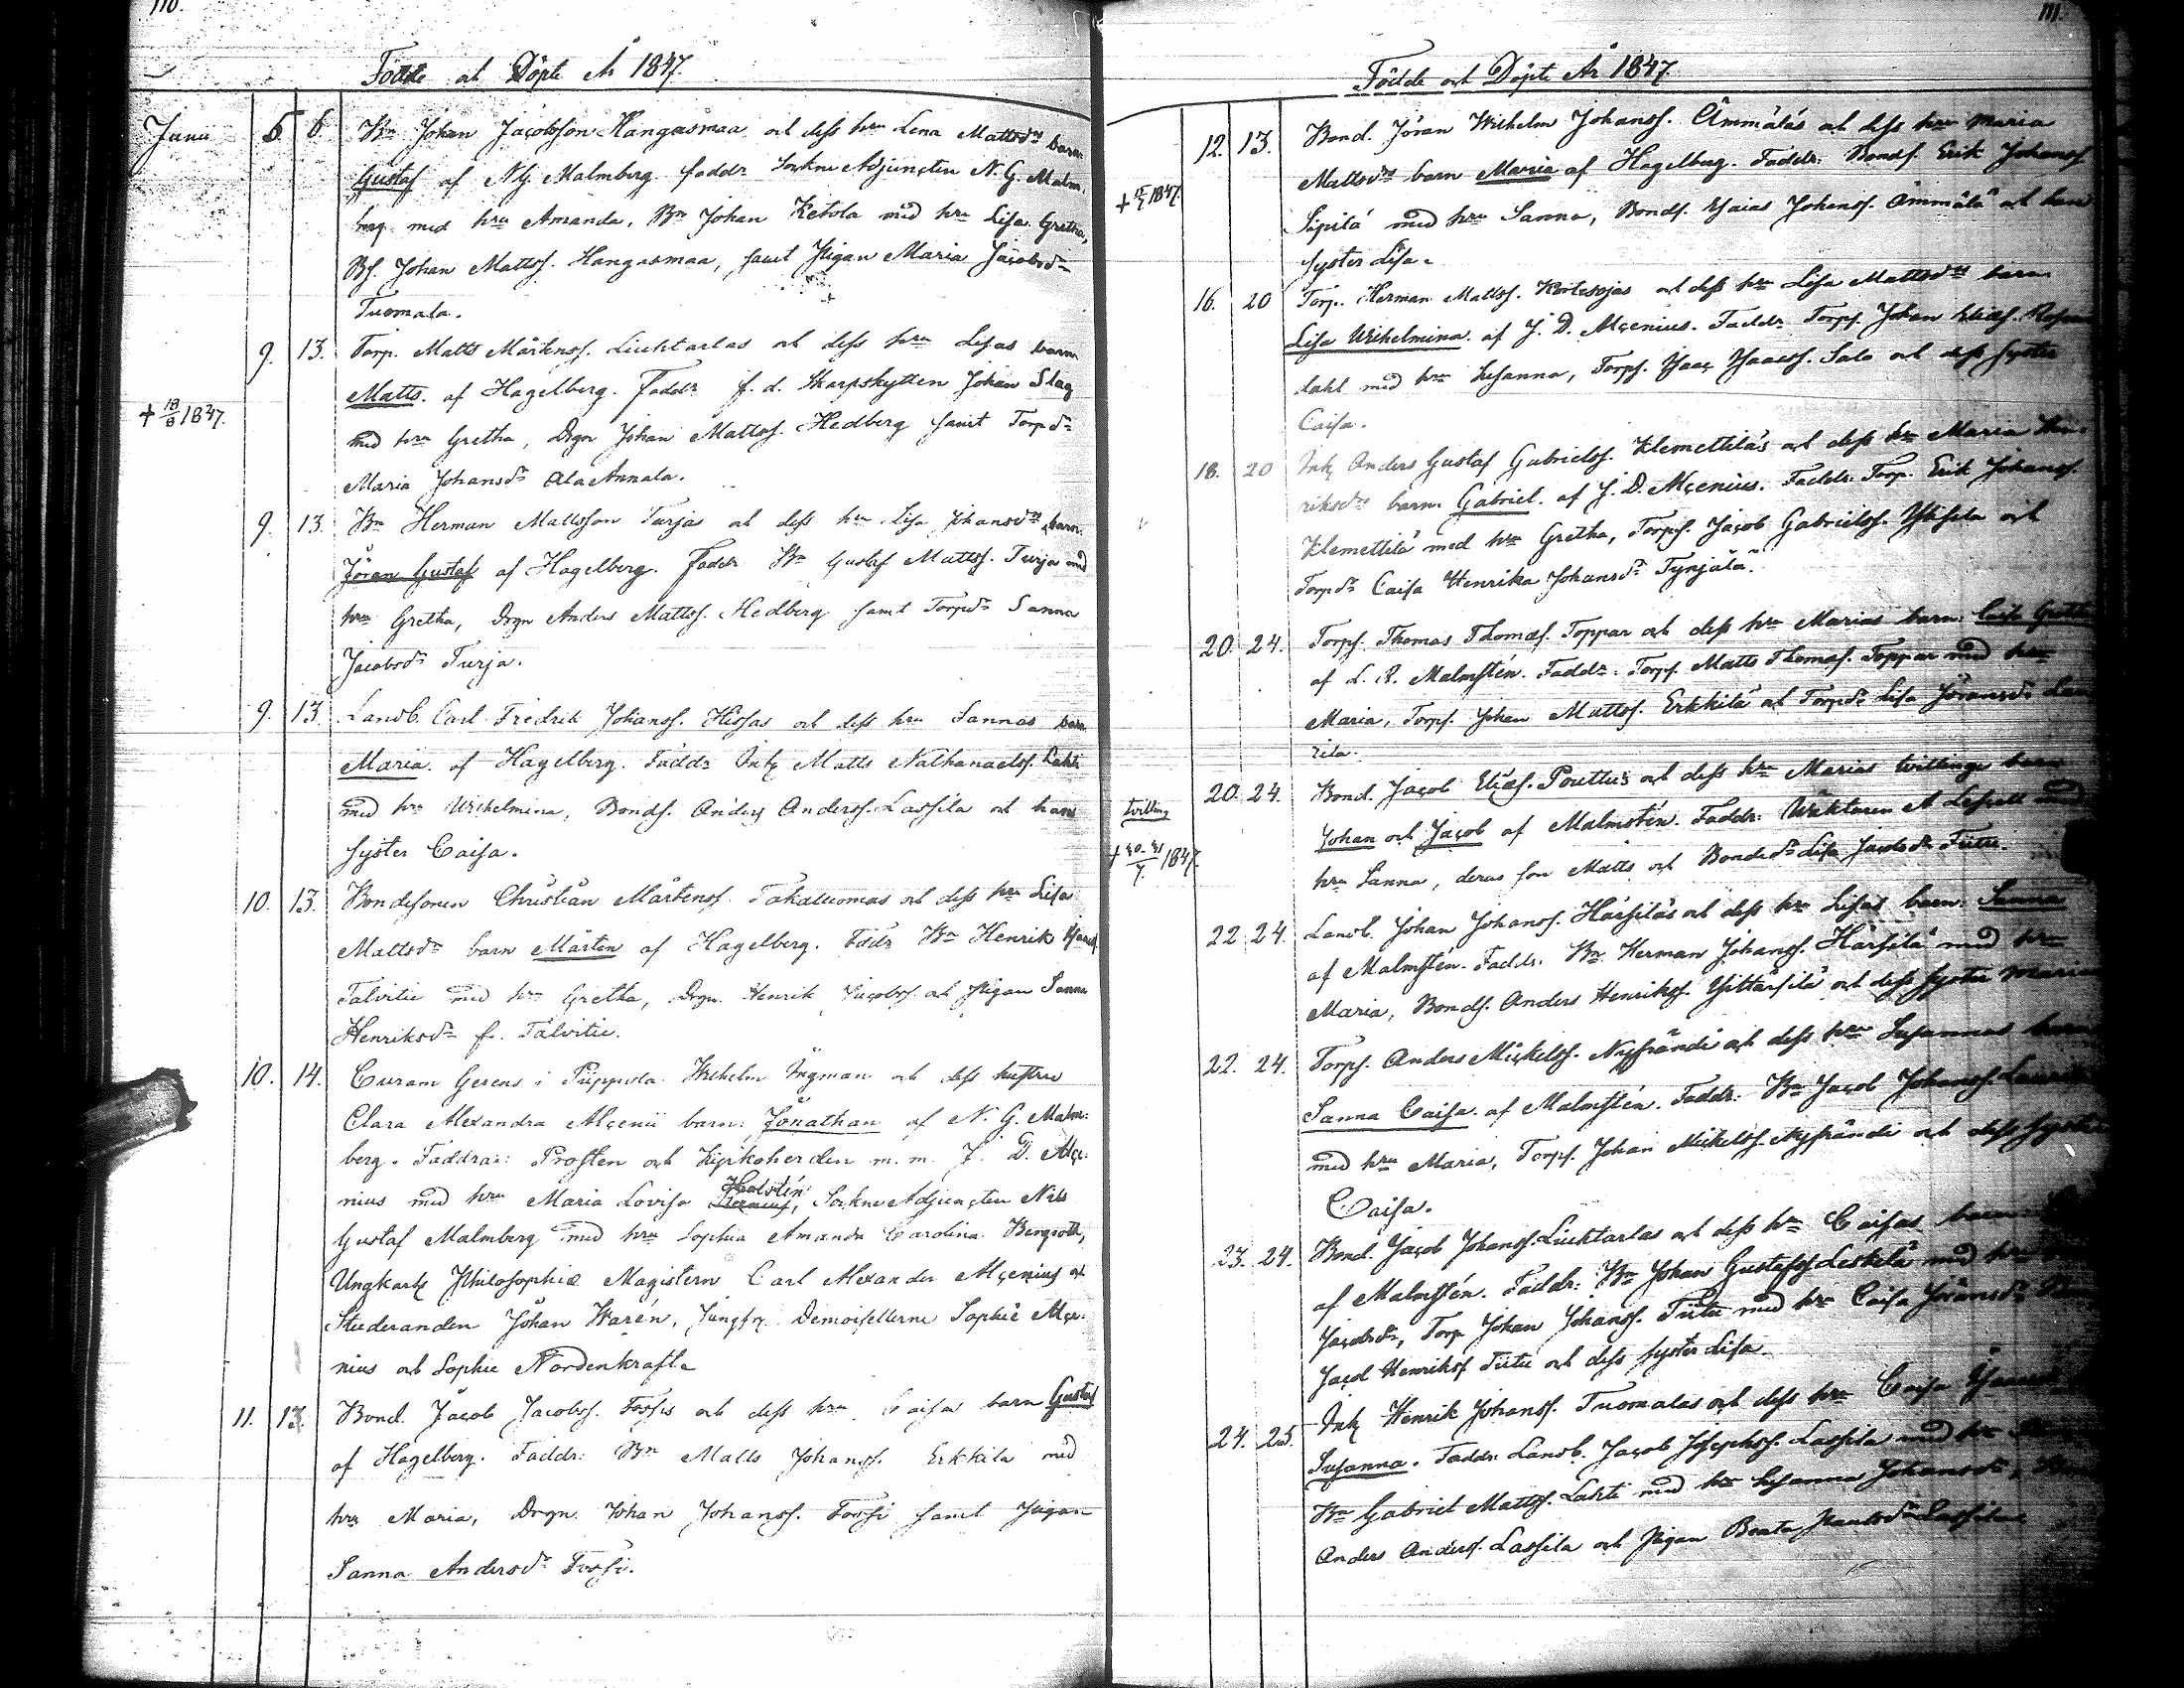 110.
Födde och Döpte År 1847.
Junii 5 6 Bn Johan Jacobsson Hangasmaa och dess hru Lena Mattsdrs barn
Gustaf af N. G. Malmberg faddr Sockne Adjuncten N. G. Malm-
berg med hru Amanda, Bn Johan Ketola med hru Lisa Gretha,
Bs. Johan Mattss. Hangasmaa, samt Pigan Maria Jacobsdr
Tuomala.
9. 13. Torp. Matts Mårtenss. Liuhtarlas och dess hru Lisas barn
+ 18/6 1847. Matts. af Hagelberg. Faddr f. d. Skarpskytten Johan Slag
med hru Gretha, Drgn Johan Mattss. Hedberg samt Torpdr
Maria Johansdr Ala Annala.
9. 13. Bn Herman Mattsson Turjas och dess hru Lisa Johansdrs barn
Jöran Gustaf af Hagelberg. Faddr Bn Gustaf Mattss. Turja med
hru Gretha, Drgn Anders Mattss. Hedberg samt Torpdr Sanna
Jacobsdr Turja.
9. 13. Landb. Carl Fredrik Johanss. Hissas och dess hru Sannas barn
Maria. af Hagelberg. Faddr Inh Matts Nathanaelss. Lahti
med hru Wilhelmina, Bonds. Anders Anderss. Lassila och hans
syster Caisa.
10. 13. Bondesonen Christian Mårtenss. Takaluomas och dess hru Lisa
Mattsdr barn Mårten af Hagelberg. Fddr Bn Henrik
Talvitie med hru Gretha, Drgn Henrik Jacobss. och Pigan Sanna
Henriksdr fr. Talvitie.
10. 14. Curam Gerens i Piippola Wilhelm Ingman och dess hustru
Clara Alexandra Alcenii barn: Jonathan af N. G. Malm-
berg. Faddrar: Prosten och Kyrkoherden m. m. J. D. Alce-
nius med hru Maria Lovisa Holstén, Sockne Adjuncten Nils
Gustaf Malmberg med hru Sophia Amanda Carolina Bergroth,
Ungkarln Philosophiæ Magistern Carl Alexander Alcenius och
Studeranden Johan Warén, Jungfr. Demoisellerne Sophie Alce-
nius och Sophie Nordenkraft.
11. 13. Bond. Jacob Jacobss. Fossis och dess hru Caisa barn Gustaf
af Hagelberg. Faddr: Bn Matts Johanss. Erkkila med
hru Maria, Drgn Johan Johanss. Fossi samt Pigan
Sanna Andersdr Fossi.
111.
Födde och Döpte År 1847.
12. 13. Bond. Jöran Wilhelm Johanss. Ämmäläs och dess hru Maria
Mattsdrs barn Maria af Hagelberg. Faddr: Bonds. Erik Johanss
Sipilä med hru Sanna, Bonds. Esaias Johanss. Ämmälä och hans
syster Lisa.
16. 20 Torp. Herman Mattss. Koitsojas och dess hru Lisa Mattsdrs barn
Lisa Wilhelmina. af J. D. Alcenius. Faddr. Torps. Johan Eliæs.
dahl med hru Susanna, Torps. Isaac Isaacss. Salo och dess syster
Caisa.
18. 20 Inh Anders Gustaf Gabrielss. Klemettiläs och dess hru Maria Hen-
riksdrs barn. Gabriel. af J. D. Alcenius. Faddr. Torp. Erik Johanss.
Klemettilä med hru Gretha, Torps. Jacob Gabrielss. och
Torpdr Caisa Henrika Johansdr Tynjälä.
20. 24. Torps. Thomas Thomæs. Toppar och dess hru Marias barn: Caisa Gretha
af L. R. Malmstén. Faddr: Torps. Matts Thomæs. Toppar med hru
Maria, Torps. Johan Mattss. Erkkilä och Torpdr Lisa Jöransdr
rila.
20. 24. Bond. Jacob Eliæs. Pouttus och dess hru Marias twillinge barn
twilling Johan och Jacob af Malmstén. Faddr: Wäktaren A med
hru Sanna, deras son Matts och Bondedr Lisa Jacobsdr Tiitu.
22 24. Landb. Johan Johanss. Härsiläs och dess hru Lisas barn. Sanna
af Malmstén. Faddr. Bn Herman Johanss. Härsilä med hru
Maria, Bonds. Anders Henrikss. och dess syster Maria
22. 24. Torps. Anders Mickelss. Nyssändi och dess hru Susannas barn
Sanna Caisa. af Malmstén. Faddr: Bn Jacob Johanss.
med hru Maria, Torps. Johan Mickelss. Nyssändi och dess syster
Caisa.
23. 24. Bond. Jacob Johanss. Liuhtarlas och dess hru Caisas barn
af Malmstén. Faddr: Bn Johan Gustafss Leskelä med hru
Jacobsdr, Torp Johan Johanss. Tiitu med hru Caisa Jöransdr
Jacob Henrikss Tiitu och dess syster Lisa.
24. 25. Inh Henrik Johanss. Tuomalas och dess hru Caisa
Susanna. Faddr. Landb. Jacob Josephss. Lassila med hru
Bn Gabriel Mattss. Lahti med hru Susanna Johansdr
Anders Anderss. Lassila och Pigan Beata Lassila